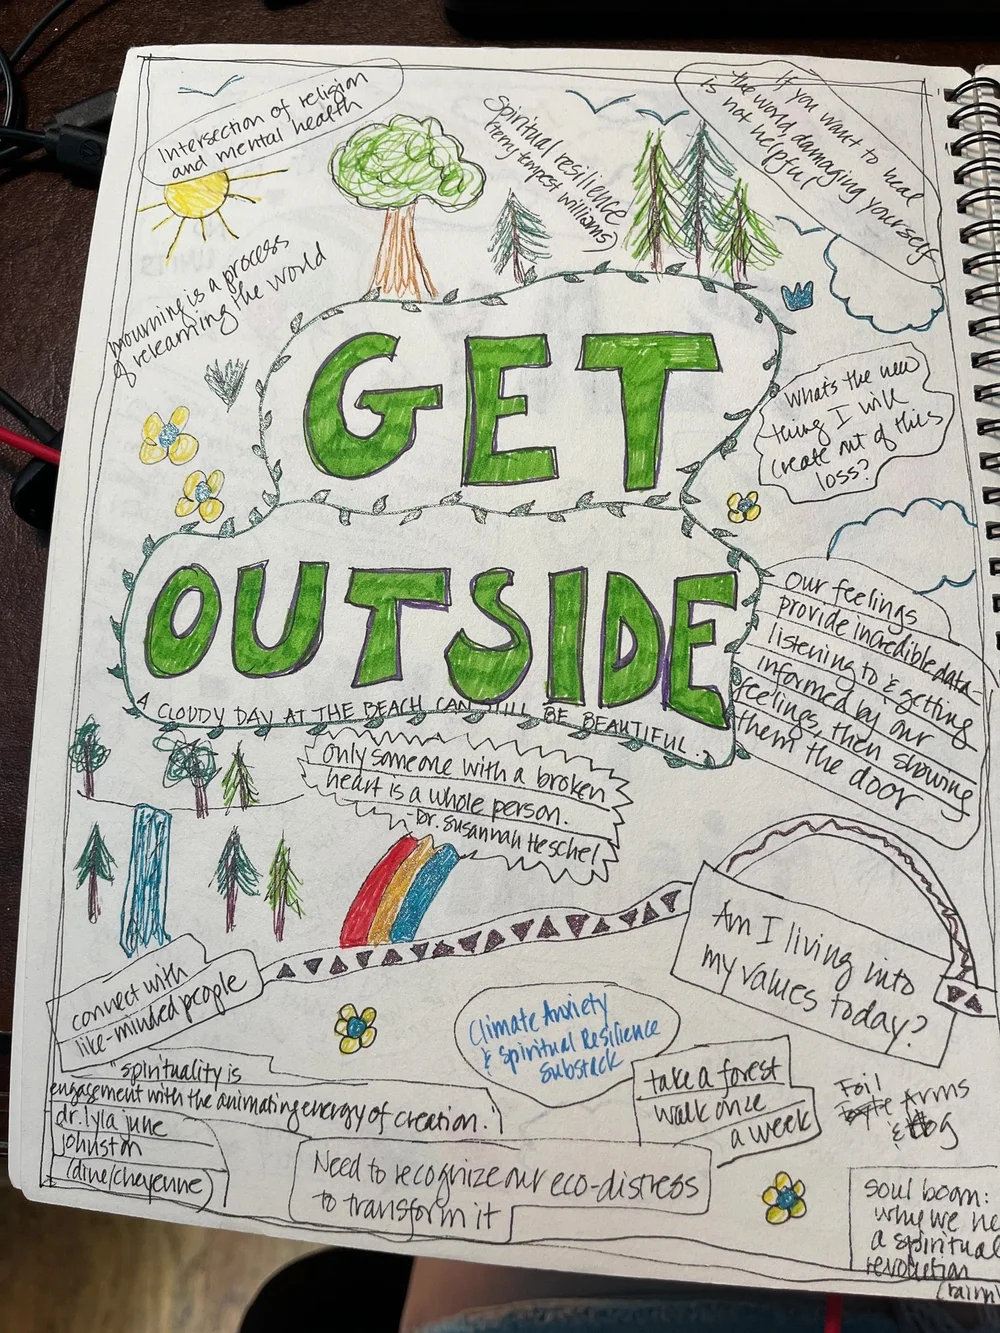 Intersection of religion
and mental health
Spiritual resilience
(terry tempest williams)
If you want to heal
the world damaging yourself
is not helpful
mourning is a process
of relearning the world
GET
What's the new
thing I will
create out of this
loss?
OUTSIDE
A CLOUDY DAY AT THE BEACH CAN STILL BE BEAUTIFUL.
Our feelings
provide incredible data-
listening to & getting
informed by our
feelings, then showing
them the door
only someone with a broken
heart is a whole person.
-Dr. Susannah Heschel
Am I living into
my values today?
connect with
like-minded people
Climate Anxiety
& Spiritual Resilience
Substack
"spirituality is
engagement with the animating energy of creation."
dr. lyla june
johnston
(dine/cheyenne)
take a forest
walk once
a week
Foil
Arms
& Hog
Need to recognize our eco-distress
to transform it
soul boom:
why we ne
a spiritual
revolution
(rainn